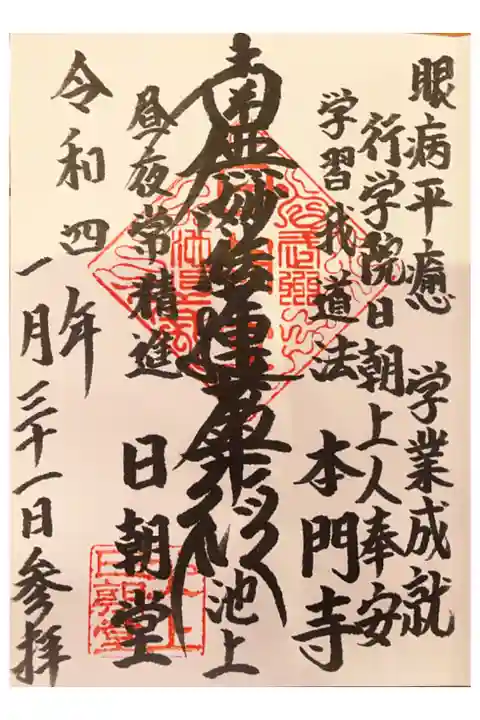 眼病平癒 学業成就
行学院日朝上人奉安
学習我道法 本門寺
南無妙法蓮華経
池上
昼夜常精進 日朝堂
令和四年
一月三十一日参拝